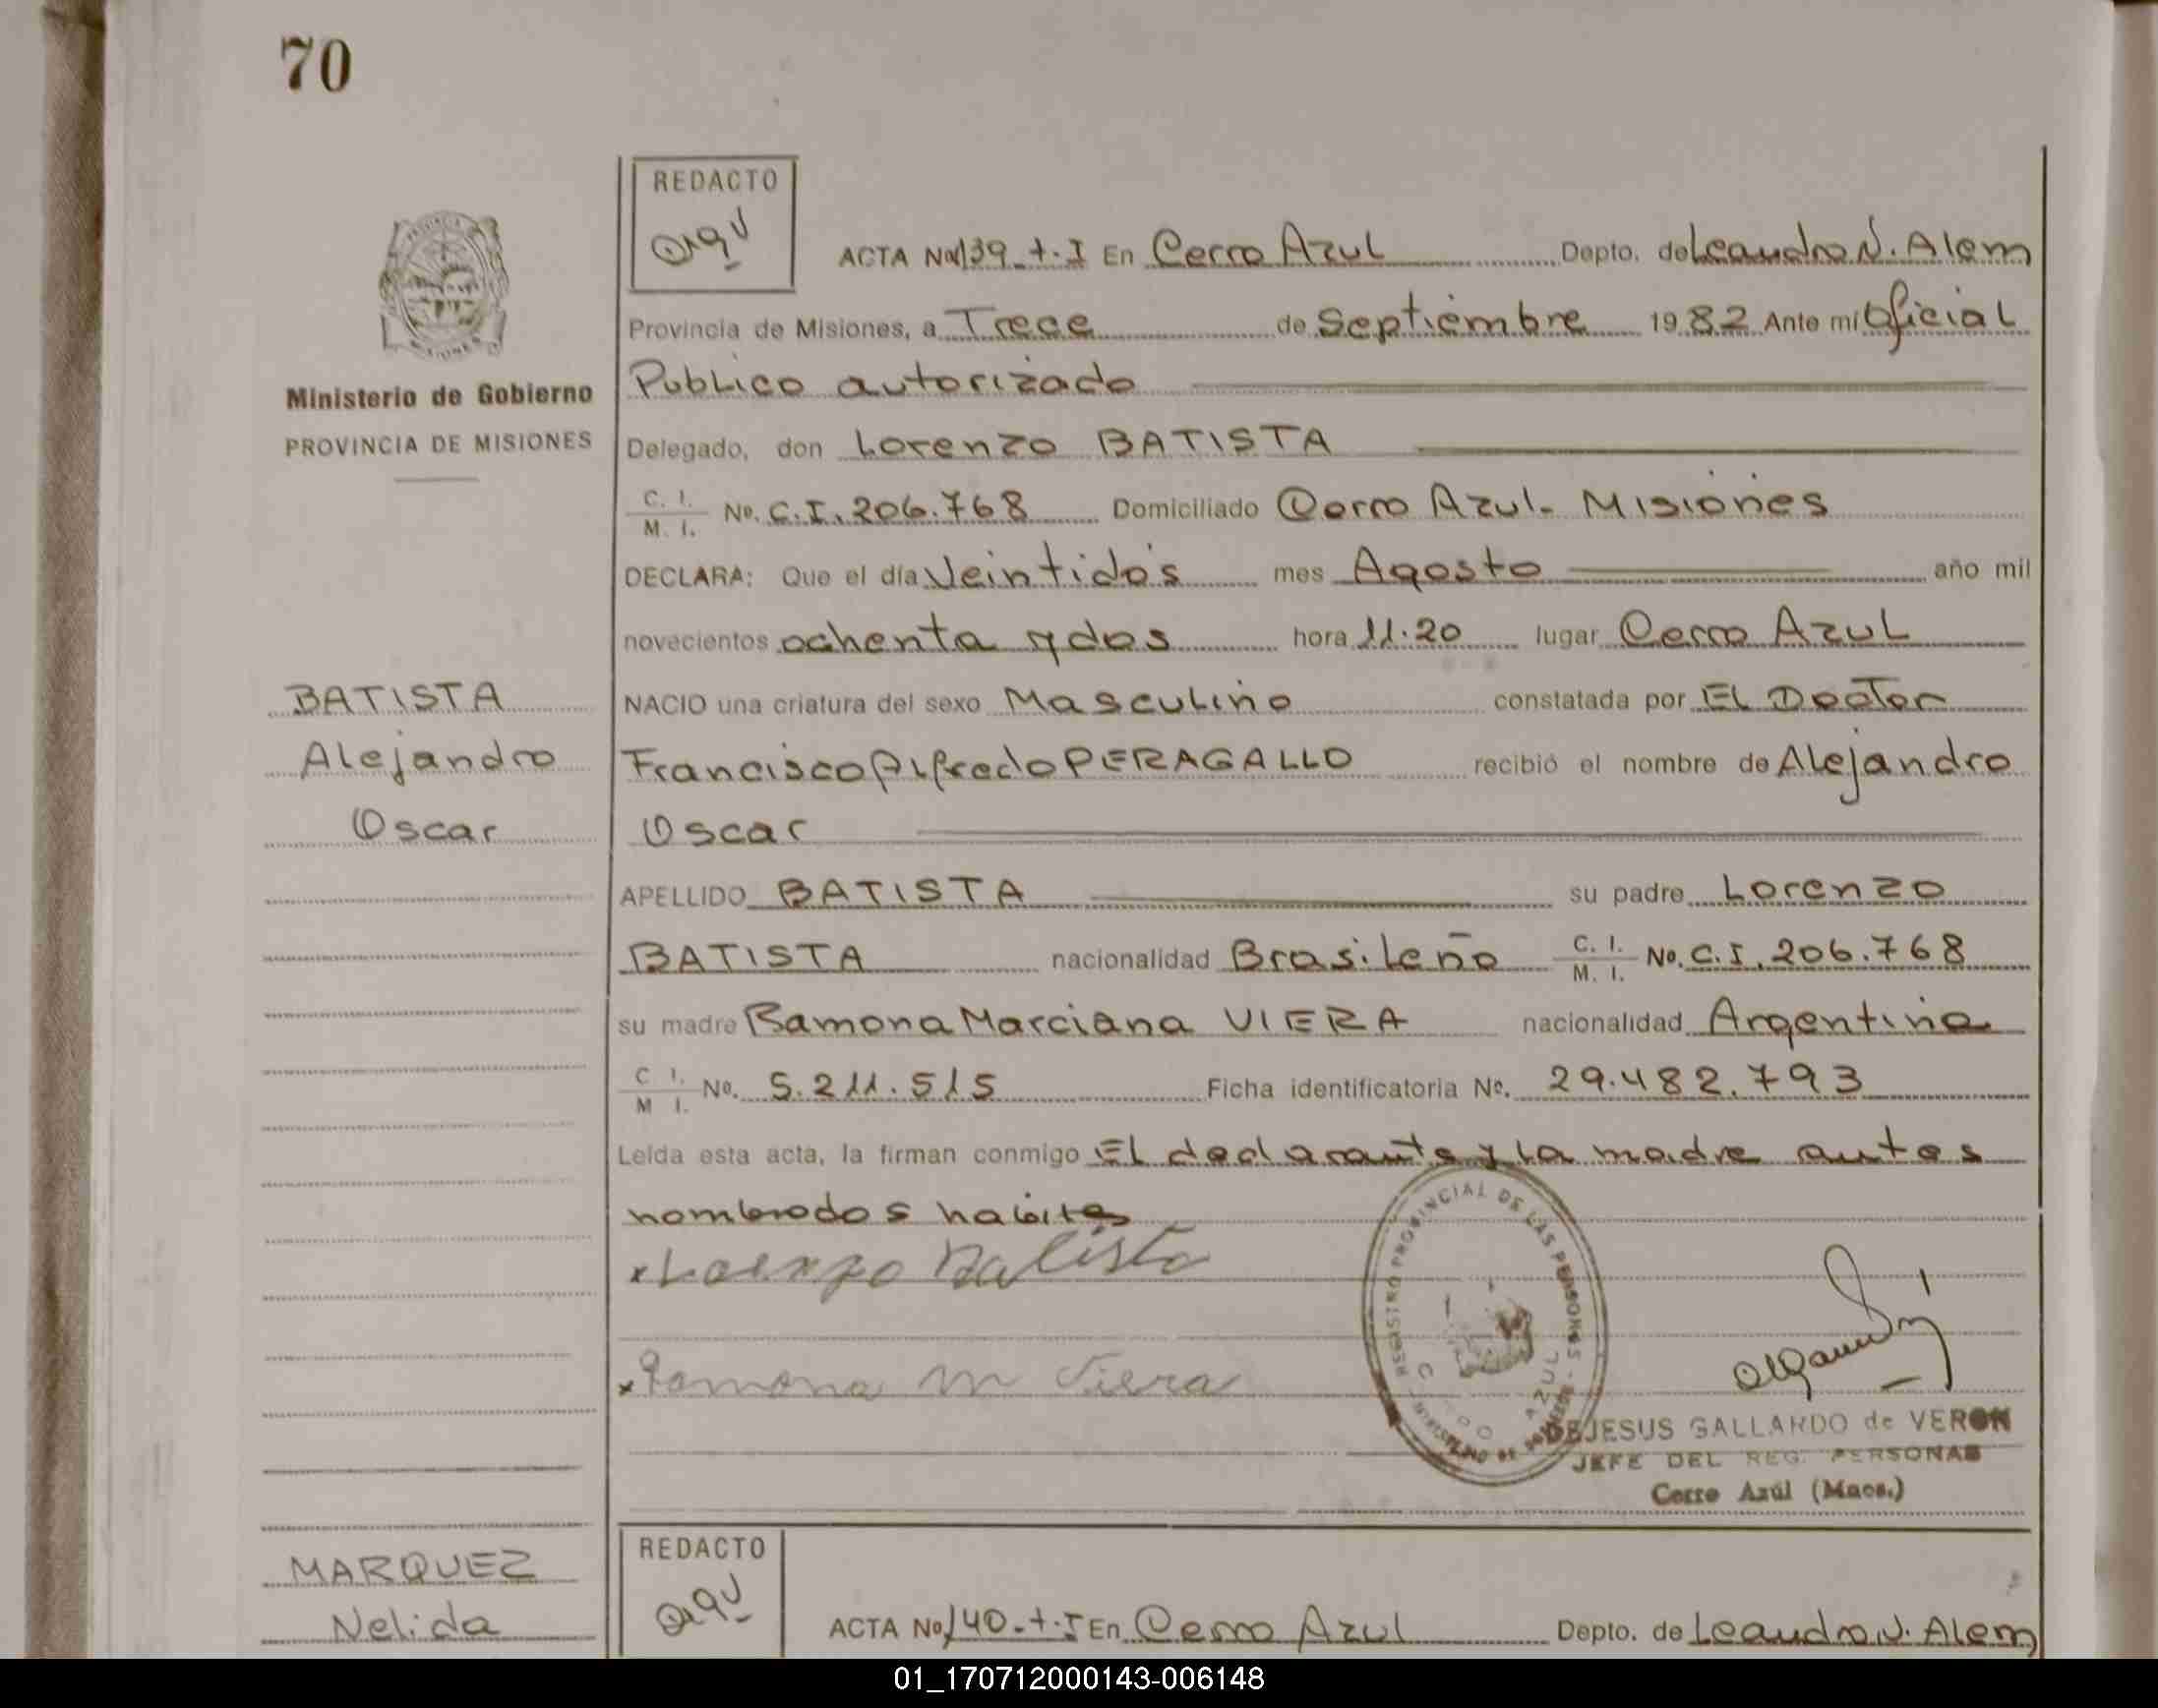 70
REDACTO
ACTA No 139_t.I En Cerro Azul Depto. de Leandro N. Alem
Provincia de Misiones, a Trece de Septiembre 1982 Ante mi Oficial
Publico autorizado
Ministerio de Gobierno
PROVINCIA DE MISIONES
Delegado, don Lorenzo BATISTA
C. I.
M. I. Nº. C.I. 206.768 Domiciliado Cerro Azul- Misiones
DECLARA: Que el día Veintidós mes Agosto año mil
novecientos ochenta y dos hora 11.20 lugar Cerro Azul
BATISTA
Alejandro
Oscar
NACIO una criatura del sexo Masculino constatada por El Doctor
Francisco Alfredo PERAGALLO recibió el nombre de Alejandro
Oscar
APELLIDO BATISTA su padre Lorenzo
BATISTA nacionalidad Brasileño C. I. M. I. Nº. C.I. 206.768
su madre Ramona Marciana VIERA nacionalidad Argentina
C I. M I. Nº. 5.211.515 Ficha identificatoria Nº. 29.482.793
Leída esta acta, la firman conmigo El declarante y la madre antes
nombrados
x Lorenzo Batista
x Ramona M Viera
REGISTRO PROVINCIAL DE LAS PERSONAS
AZUL
DEJESUS GALLARDO de VERON
JEFE DEL REG. PERSONAS
Cerro Azúl (Mnes.)
MARQUEZ
Nelida
REDACTO
ACTA No 140_t.I En Cerro Azul Depto. de Leandro N. Alem
01_170712000143-006148